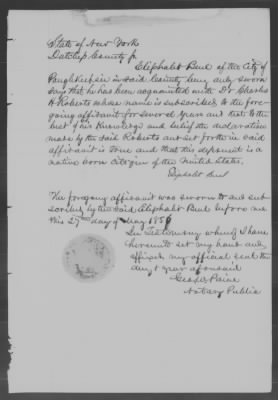 State of New York
Dutchess County ss
Eliphalet Bud of the City of
Poughkeepsie in said County being duly sworn
says that he has been acquainted with Dr Charles
H Roberts whose name is subscribed to the fore-
going affidavit for several years and that to the
best of his knowledge and belief the declaration
made by the said Roberts and set forth in said
affidavit is true and that this deponent is a
native born citizen of the United States.
Eliphalet Bud
The foregoing affidavit was sworn to and sub-
scribed by the said Eliphalet Bud before me
this 27 day of May 1856
In Testimony whereof I have
hereunto set my hand and
affixed my official seal the
day & year aforesaid
Paine
Notary Public